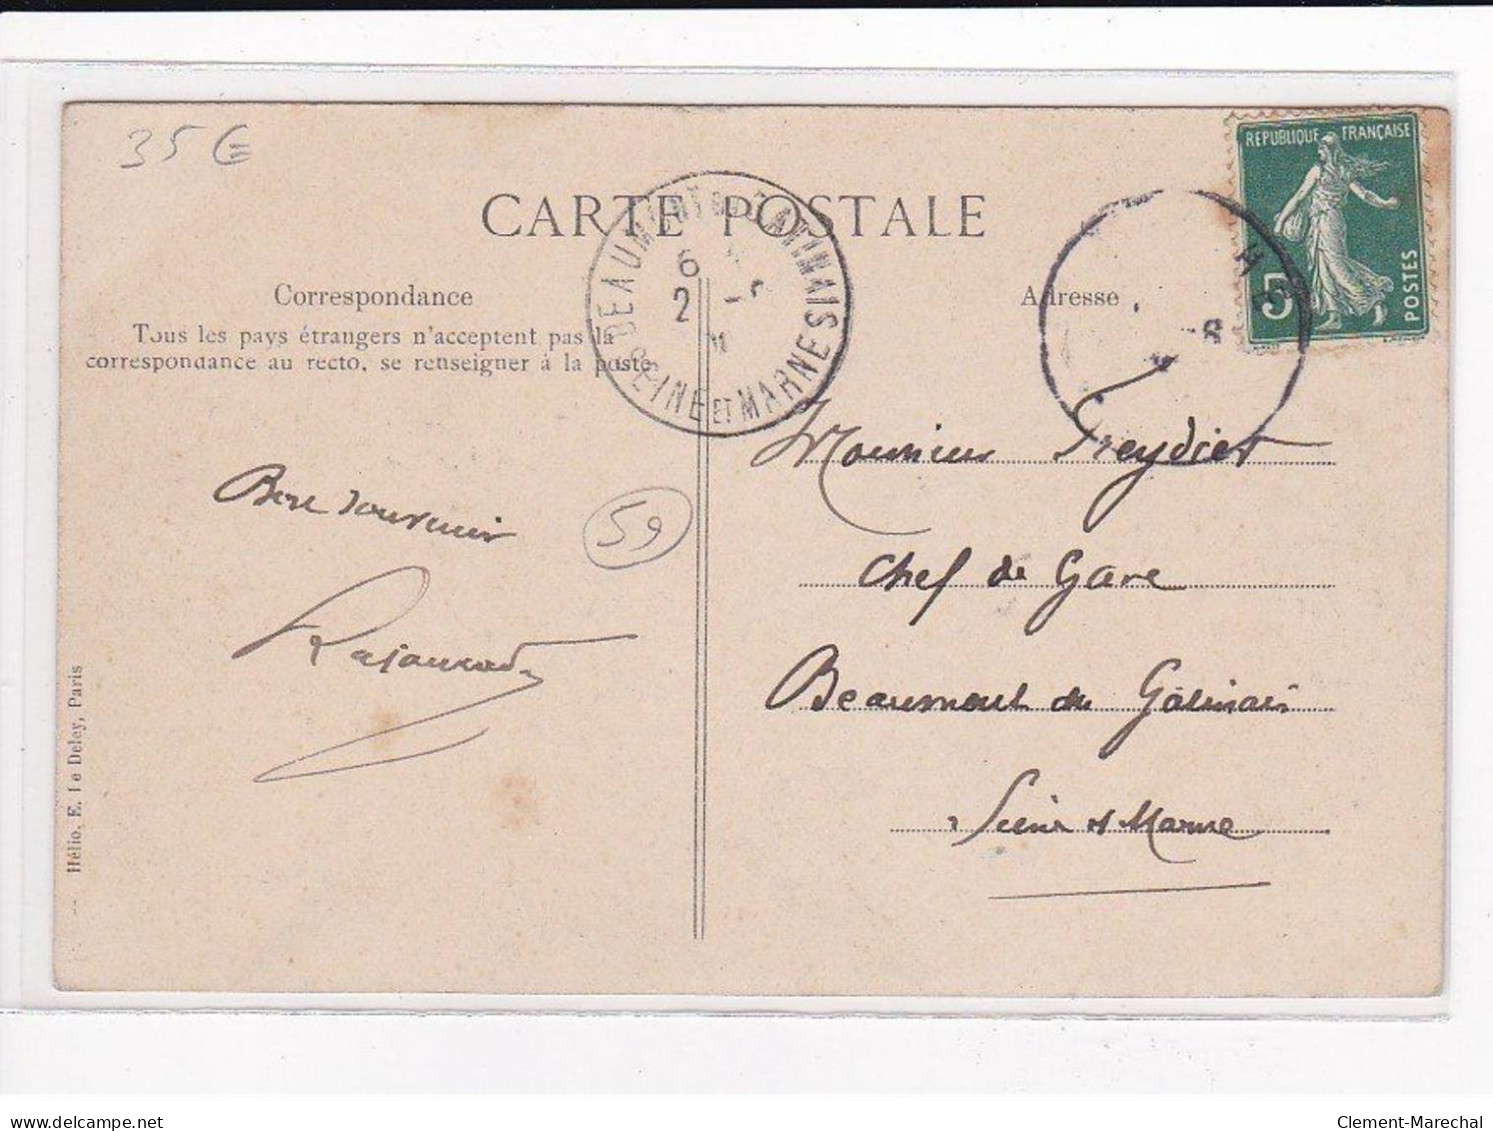 35 €
CARTE POSTALE
RÉPUBLIQUE FRANÇAISE
5
POSTES
BEAUMONT DU GATINAIS
6
2
SEINE ET MARNE
8
Correspondance
Tous les pays étrangers n'acceptent pas la
correspondance au recto, se renseigner à la poste
Adresse
Bon souvenir
59
Monsieur Freydier
Chef de Gare
Beaumont du Gatinais
Seine et Marne
Hélio. E. Le Deley, Paris
delcampe.net
Clement-Marechal